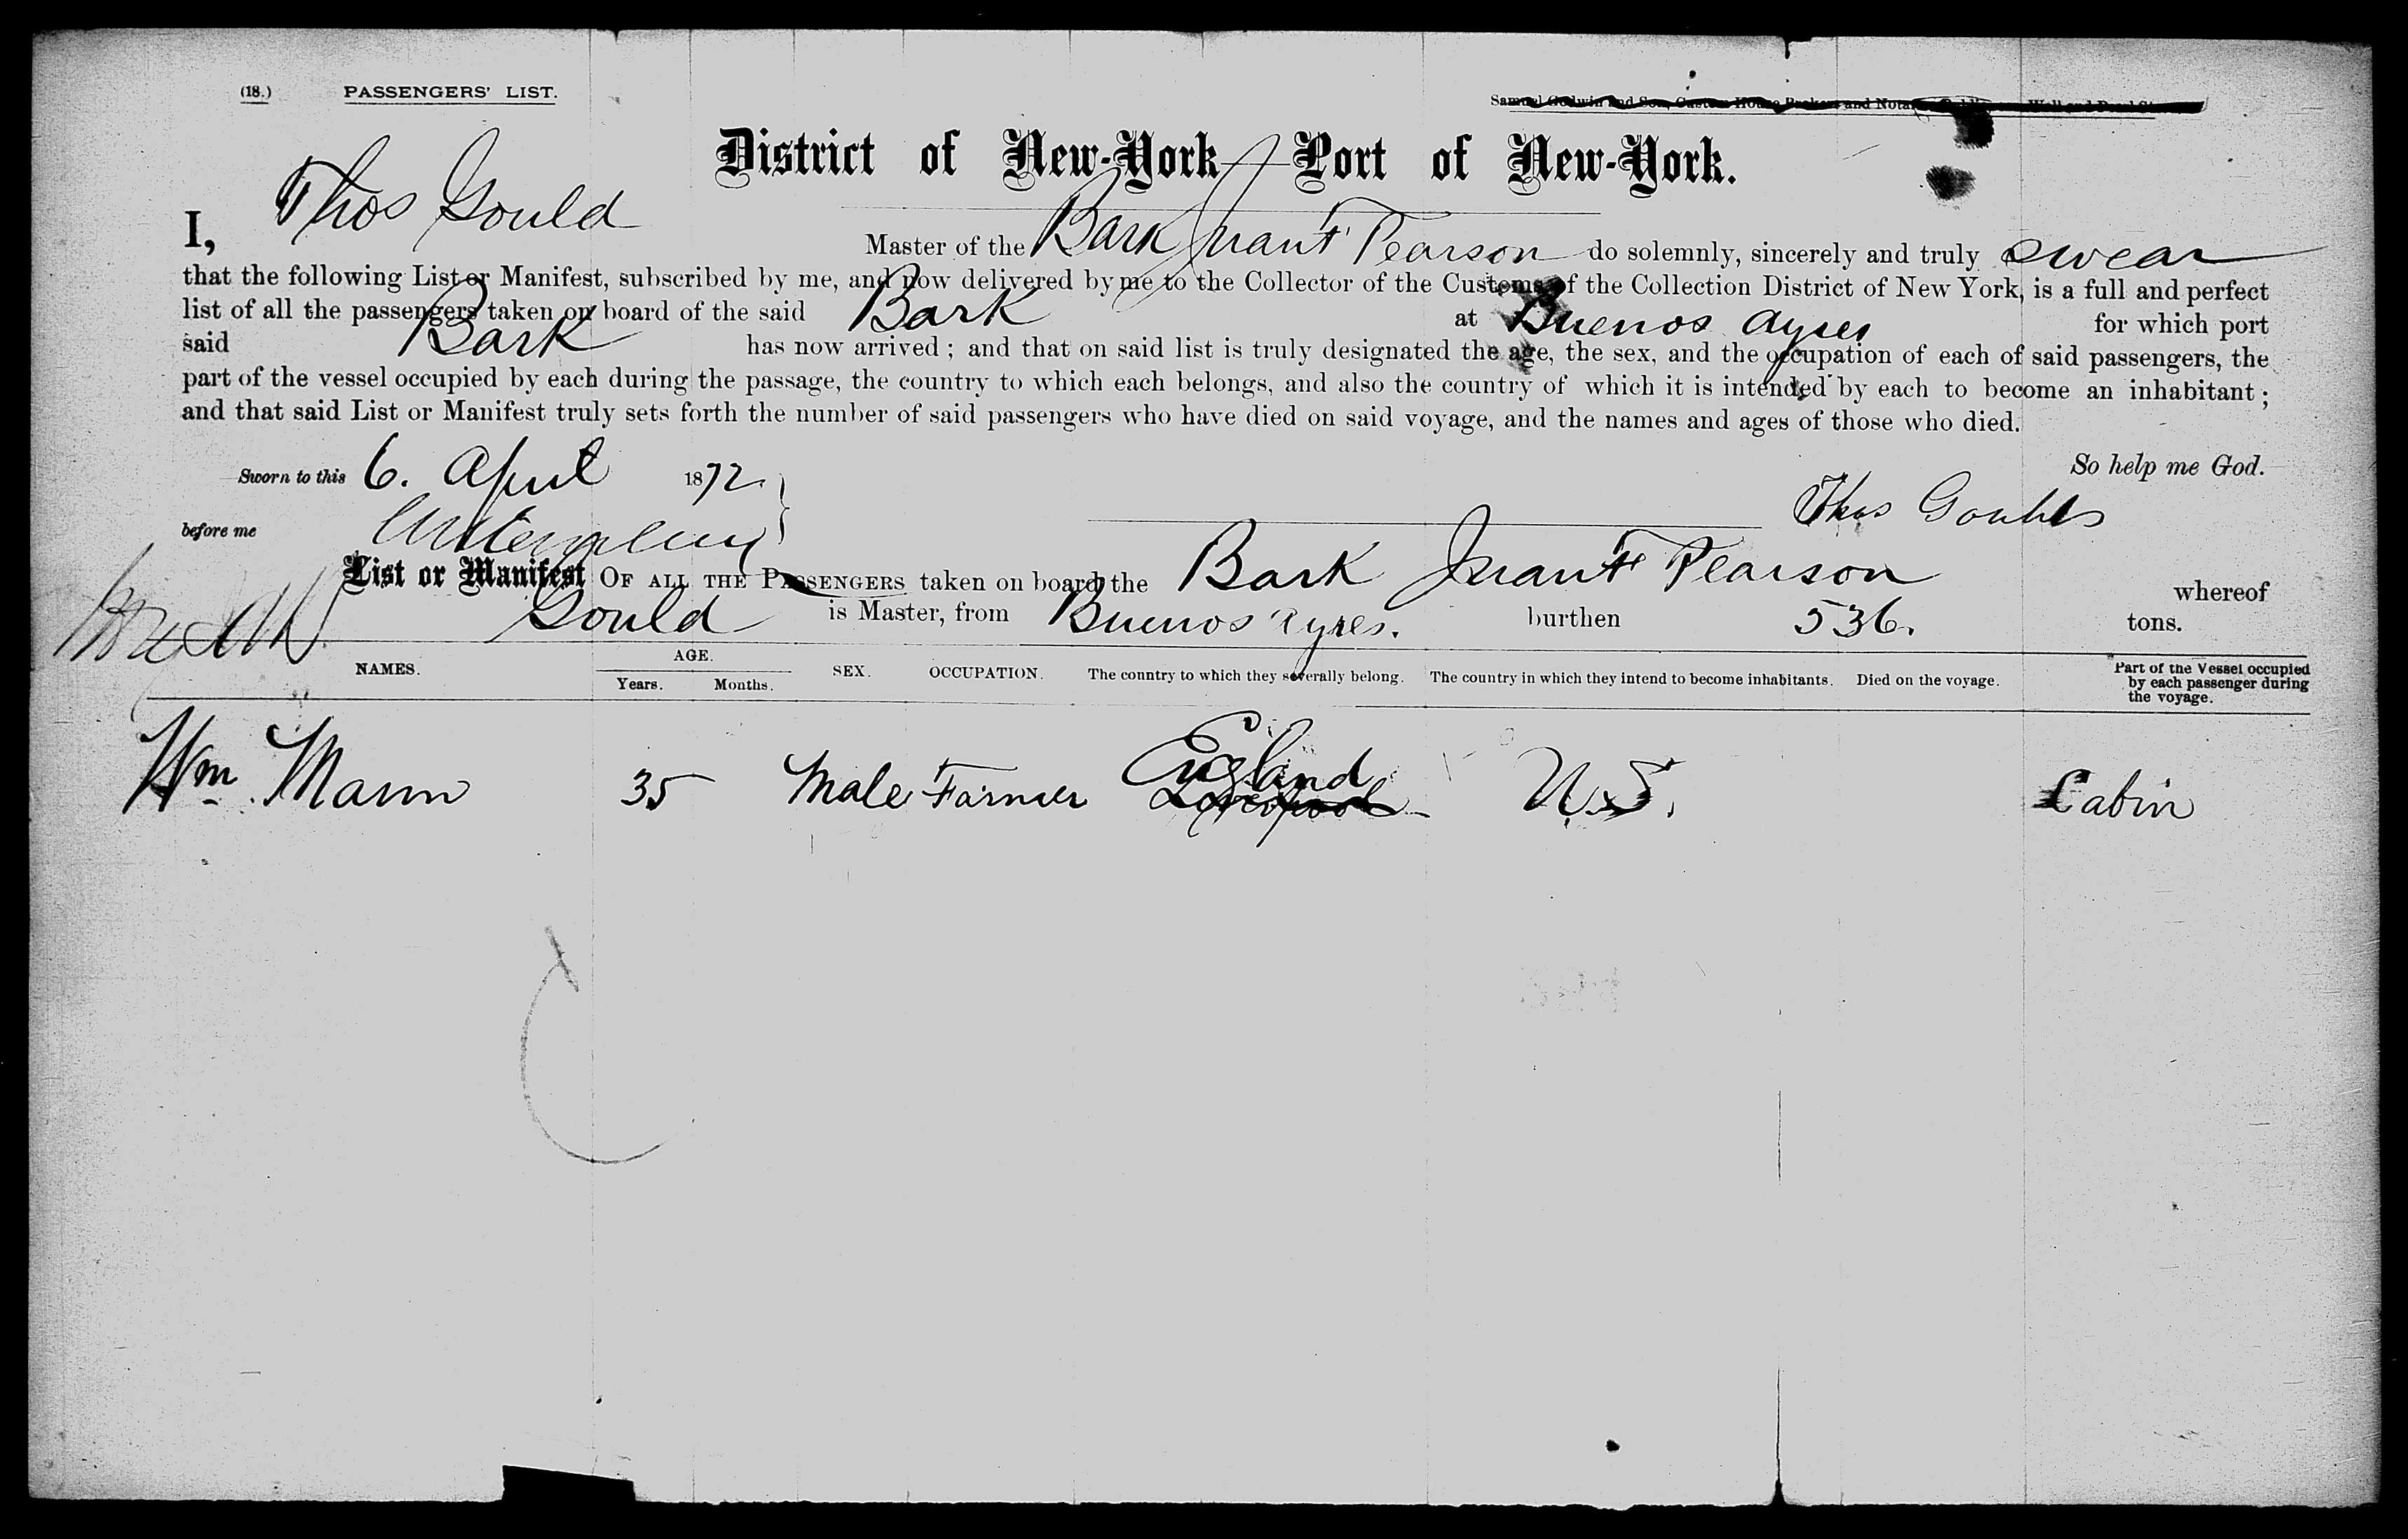 (18.) PASSENGERS' LIST.
Samuel Godwin and Son, Custom House Brokers and Notaries Wall and Pearl St
District of New-York—Port of New-York.
I, Thos Gould Master of the Bark Grant Pearson do solemnly, sincerely and truly swear
that the following List or Manifest, subscribed by me, and now delivered by me to the Collector of the Customs of the Collection District of New York, is a full and perfect
list of all the passengers taken on board of the said Bark at Buenos Ayres for which port
said Bark has now arrived; and that on said list is truly designated the age, the sex, and the occupation of each of said passengers, the
part of the vessel occupied by each during the passage, the country to which each belongs, and also the country of which it is intended by each to become an inhabitant;
and that said List or Manifest truly sets forth the number of said passengers who have died on said voyage, and the names and ages of those who died.
So help me God.
Sworn to this 6. April 1872.
Thos Gould
before me
List or Manifest OF ALL THE PASSENGERS taken on board the Bark Pearson whereof
Gould is Master, from Buenos Ayres. burthen 536. tons.
NAMES. AGE. Years. Months. SEX. OCCUPATION. The country to which they severally belong. The country in which they intend to become inhabitants. Died on the voyage. Part of the Vessel occupied by each passenger during the voyage.
Wm. Mann 35 Male Farmer England Liverpool U.S. Cabin